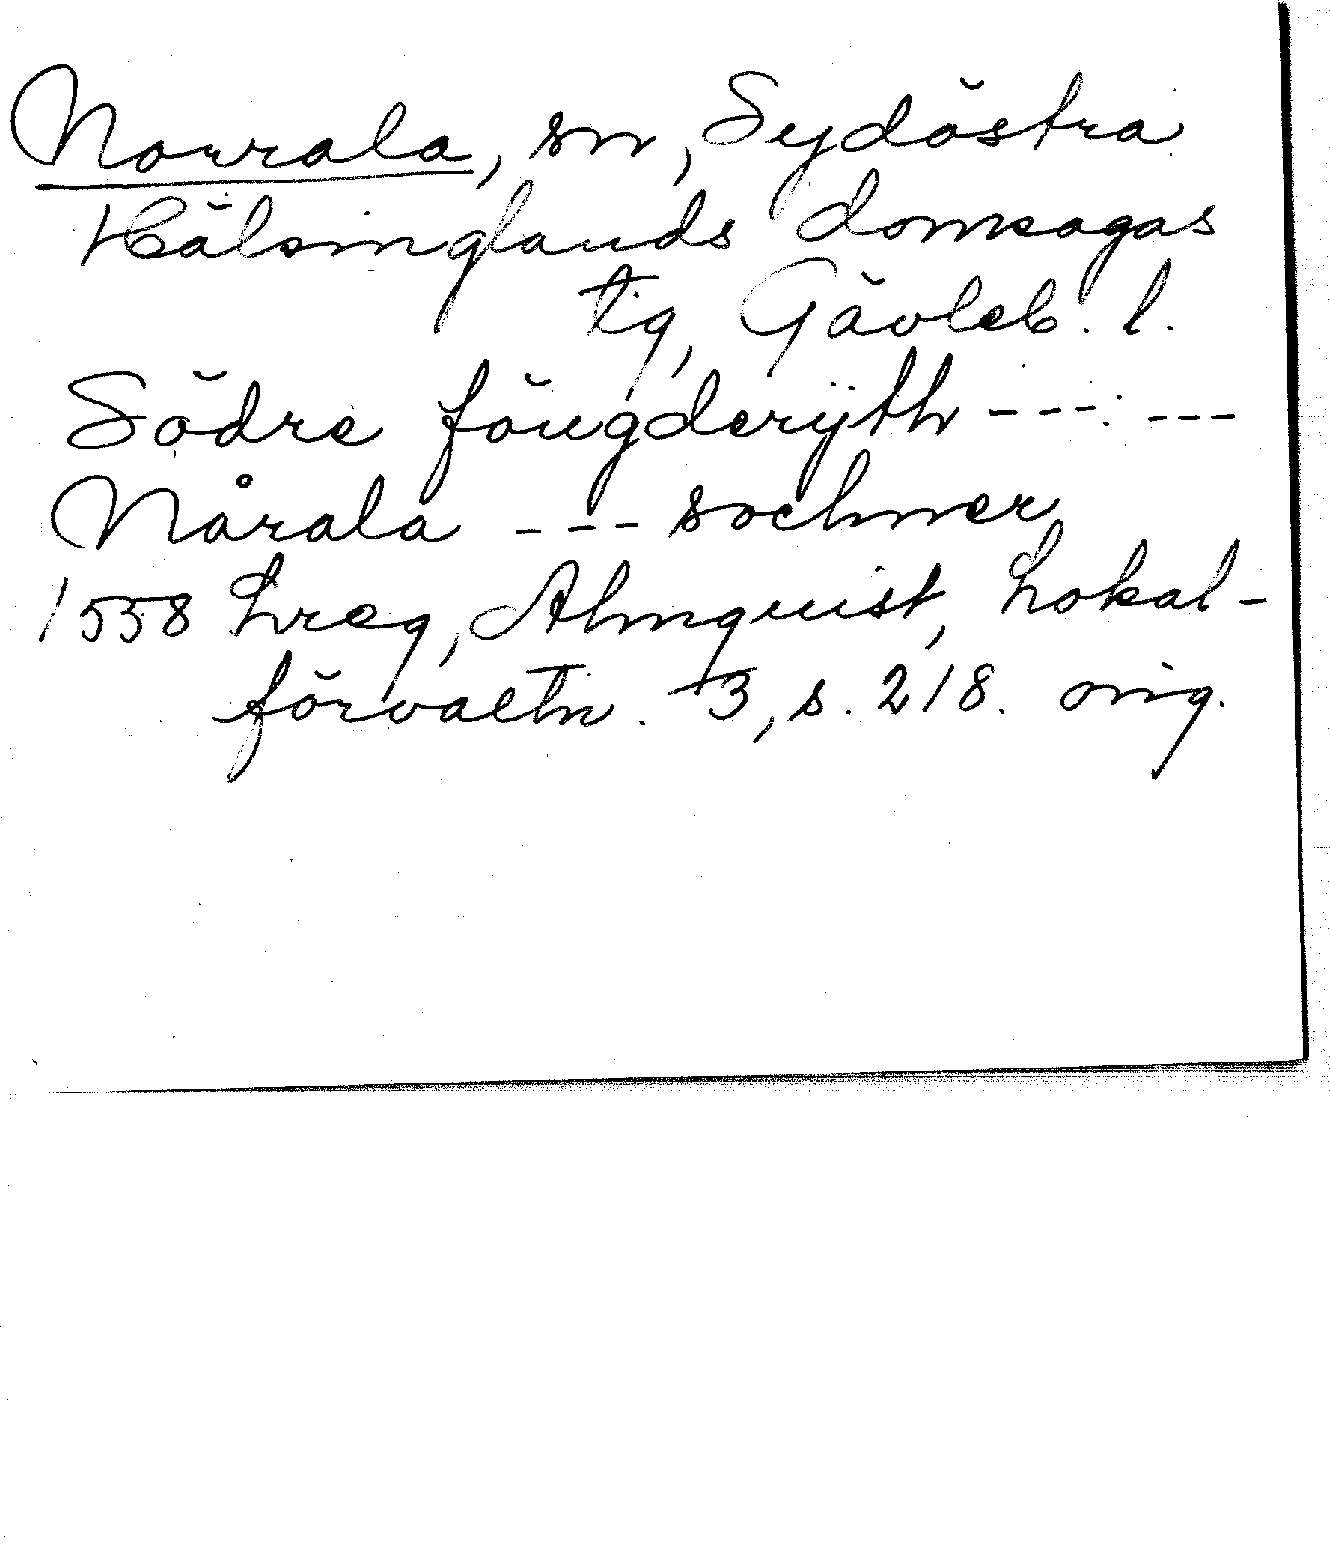 Norrala, sn, Sydöstra
Hälsinglands domsagas
tg, Gävleb. l.
Södre föugderÿth --- ---
Nårala --- sochner
1558 Lreg, Almquist, Lokal-
förvaltn. 3, s. 218. orig.